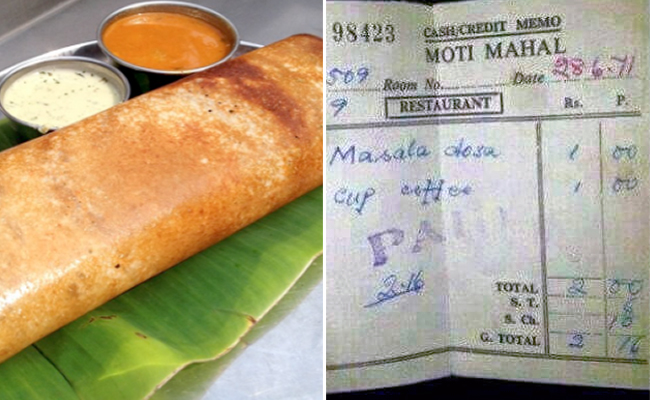 98423 CASH/CREDIT MEMO
MOTI MAHAL
509 Room No. Date 28.6.71
9 RESTAURANT Rs. P.
Masala dosa 1 00
Cup coffee 1 00
PAID
2.16
TOTAL 2 00
S. T.
S. Ch. 16
G. TOTAL 2 16